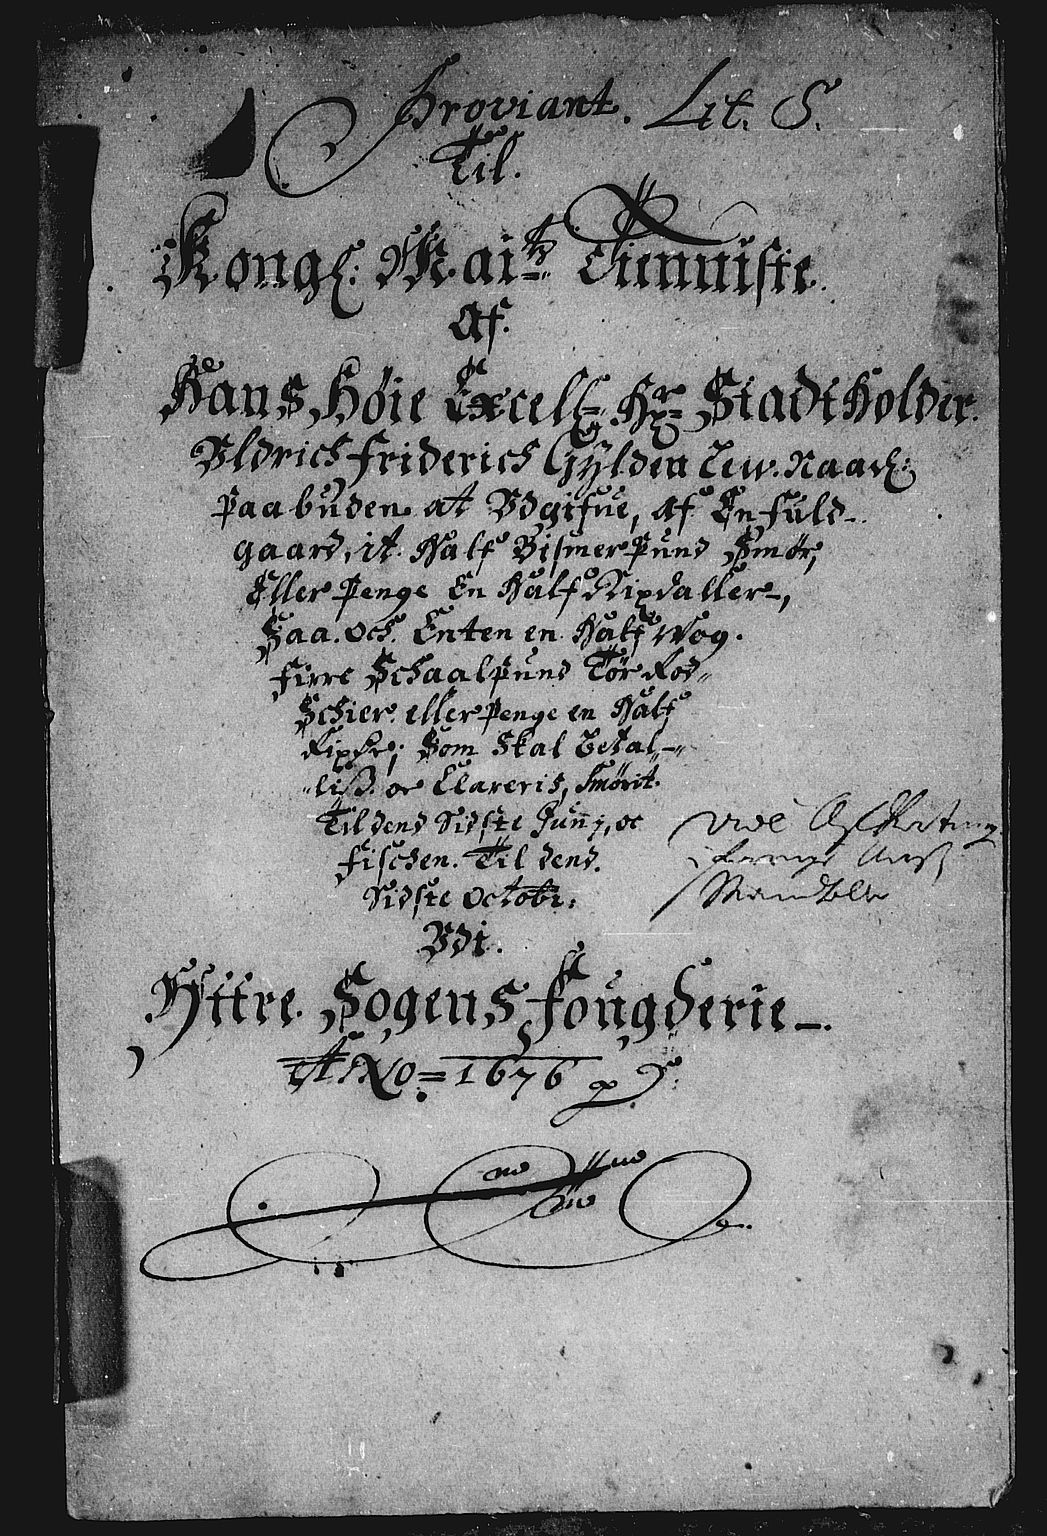 Proviant. Lit. S.
Til.
Kongl: Mai:tz Tienniste.
Af.
Hans Höie Excell: Hr: Stadtholder.
Vldrich Friderich Gylden Lew. Naadl:
Paabuden at Vdgifue, af En fuld-
gaard, it. Half Bismer Pund Smör,
Eller Penge En Half Rixdaller,
Saa. Och. Enten en. Half Wog.
firre Schaalpund Tör Rod-
Schier. eller Penge en Half
Rixdr; Som Skal Betal-
liß. oc Clareris, Smörit.
Til dend Sidste Junij, oc
fischen. Til dend.
Sidste Octobr:
Vdi.
Yttre. Sogens Fougderie.
Anno = 1676
vide